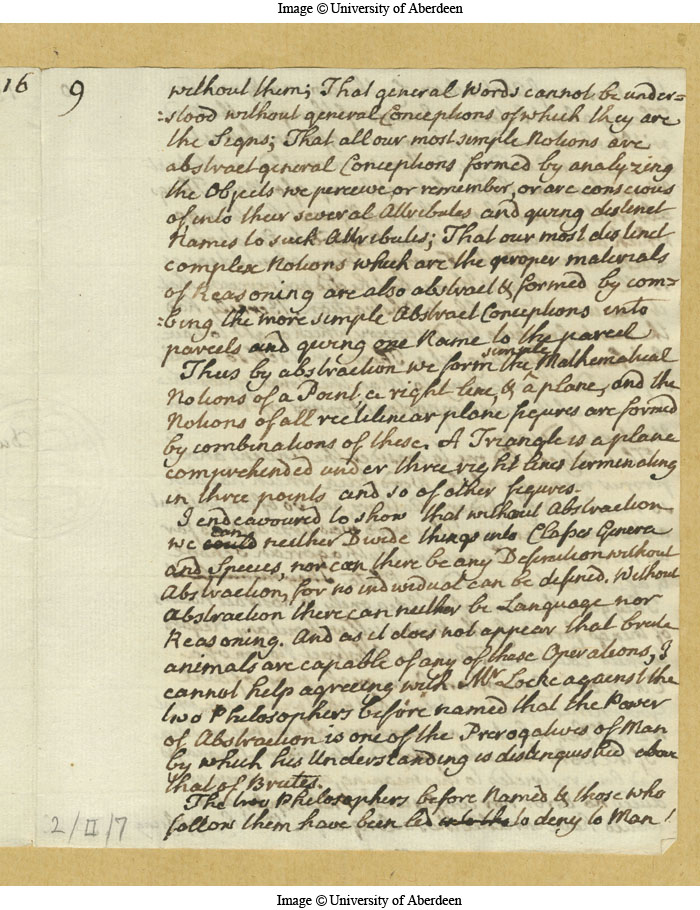 Image © University of Aberdeen
16
9
without them; That general Words cannot be under=
:stood without general Conceptions of which they are
the Signs; That all our most simple Notions are
abstract general Conceptions formed by analyzing
the Objects we perceive or remember, or are conscious
of into their several Attributes and giving distinct
Names to such Attributes; That our most distinct
complex Notions which are the proper materials
of Reasoning are also abstract & formed by com=
:bing the more simple Abstract Conceptions into
parcels and giving one Name to the parcel
Thus by abstraction we form the simple Mathematical
Notions of a Point, a right line, & a plane, and the
Notions of all rectilinear plane figures are formed
by combinations of these. A Triangle is a plane
comprehended under three right lines terminating
in three points and so of other figures.
I endeavoured to show that without Abstraction
we could can neither Divide things into Classes Genera
and Species, nor can there be any Definition without
Abstraction, for no individual can be defined. Without
Abstraction there can neither be Language nor
Reasoning. And as it does not appear that brute
animals are capable of any of these Operations, I
cannot help agreeing with Mr Locke against the
two Philosophers before named that the Power
of Abstraction is one of the Prerogatives of Man
by which his Understanding is distinguished above
that of Brutes.
The two Philosophers before Named & those who
follow them have been led into the to deny to Man
2/II/7
Image © University of Aberdeen